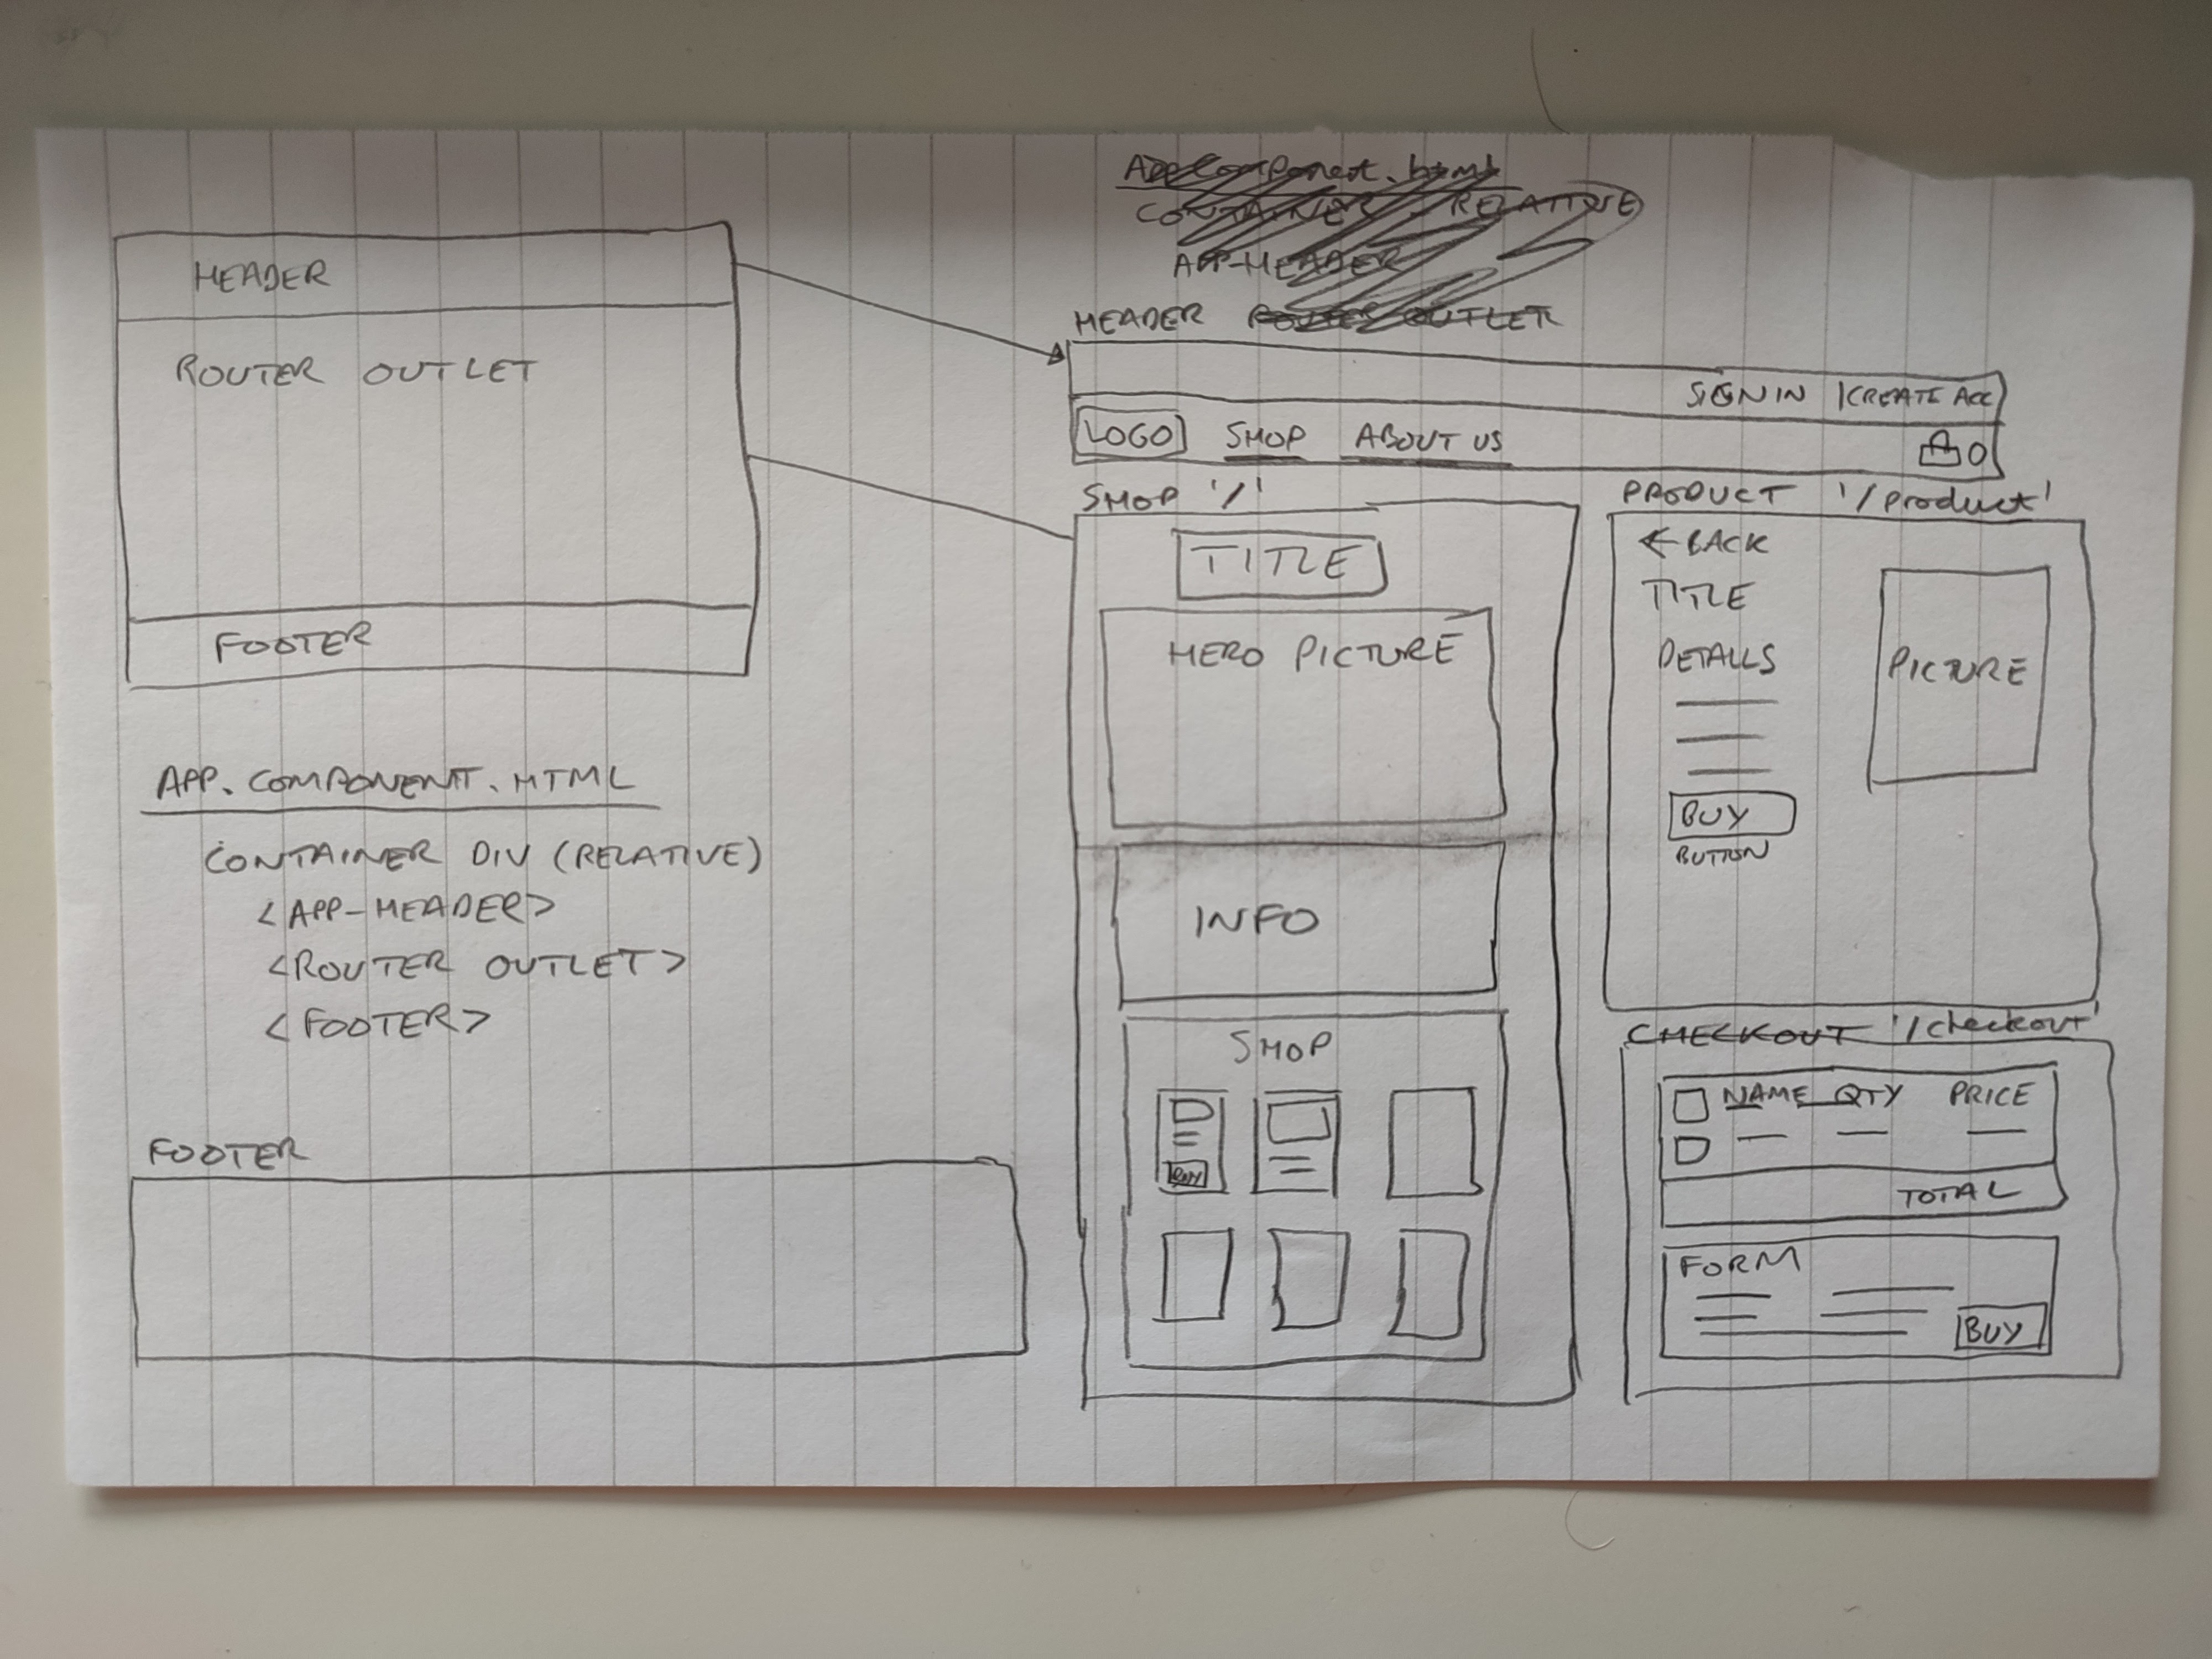 HEADER
ROUTER OUTLET
FOOTER
APP.COMPONENT.HTML
CONTAINER DIV (RELATIVE)
<APP-HEADER>
<ROUTER OUTLET>
<FOOTER>
FOOTER
AppComponent.html
CONTAINER - RELATIVE
APP-HEADER
HEADER ROUTER OUTLET
SIGN IN | CREATE ACC
LOGO SHOP ABOUT US 0
SHOP '/'
TITLE
HERO PICTURE
INFO
SHOP
BUY
PRODUCT '/product'
← BACK
TITLE
DETAILS
PICTURE
BUY
BUTTON
CHECKOUT '/checkout'
NAME QTY PRICE
TOTAL
FORM
BUY